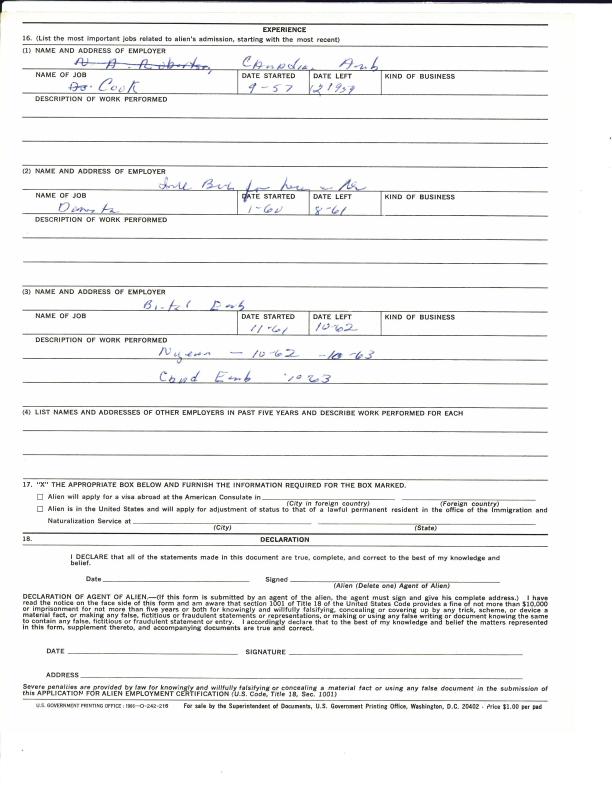 EXPERIENCE
16. (List the most important jobs related to alien's admission, starting with the most recent)
(1) NAME AND ADDRESS OF EMPLOYER
Canadian Amb
NAME OF JOB DATE STARTED DATE LEFT KIND OF BUSINESS
Cook 9-57 12 1959
DESCRIPTION OF WORK PERFORMED
(2) NAME AND ADDRESS OF EMPLOYER
for
NAME OF JOB DATE STARTED DATE LEFT KIND OF BUSINESS
1-60 8-61
DESCRIPTION OF WORK PERFORMED
(3) NAME AND ADDRESS OF EMPLOYER
Emb
NAME OF JOB DATE STARTED DATE LEFT KIND OF BUSINESS
11-61 10-62
DESCRIPTION OF WORK PERFORMED
— 10-62 -10-63
Cand Emb 10-63
(4) LIST NAMES AND ADDRESSES OF OTHER EMPLOYERS IN PAST FIVE YEARS AND DESCRIBE WORK PERFORMED FOR EACH
17. "X" THE APPROPRIATE BOX BELOW AND FURNISH THE INFORMATION REQUIRED FOR THE BOX MARKED.
Alien will apply for a visa abroad at the American Consulate in
(City in foreign country) (Foreign country)
Alien is in the United States and will apply for adjustment of status to that of a lawful permanent resident in the office of the Immigration and
Naturalization Service at
(City) (State)
18. DECLARATION
I DECLARE that all of the statements made in this document are true, complete, and correct to the best of my knowledge and
belief.
Date Signed
(Alien (Delete one) Agent of Alien)
DECLARATION OF AGENT OF ALIEN.—(If this form is submitted by an agent of the alien, the agent must sign and give his complete address.) I have
read the notice on the face side of this form and am aware that section 1001 of Title 18 of the United States Code provides a fine of not more than $10,000
or imprisonment for not more than five years or both for knowingly and willfully falsifying, concealing or covering up by any trick, scheme, or device a
material fact, or making any false, fictitious or fraudulent statements or representations, or making or using any false writing or document knowing the same
to contain any false, fictitious or fraudulent statement or entry. I accordingly declare that to the best of my knowledge and belief the matters represented
in this form, supplement thereto, and accompanying documents are true and correct.
DATE SIGNATURE
ADDRESS
Severe penalties are provided by law for knowingly and willfully falsifying or concealing a material fact or using any false document in the submission of
this APPLICATION FOR ALIEN EMPLOYMENT CERTIFICATION (U.S. Code, Title 18, Sec. 1001)
U.S. GOVERNMENT PRINTING OFFICE : 1965—O-242-216 For sale by the Superintendent of Documents, U.S. Government Printing Office, Washington, D.C. 20402 - Price $1.00 per pad